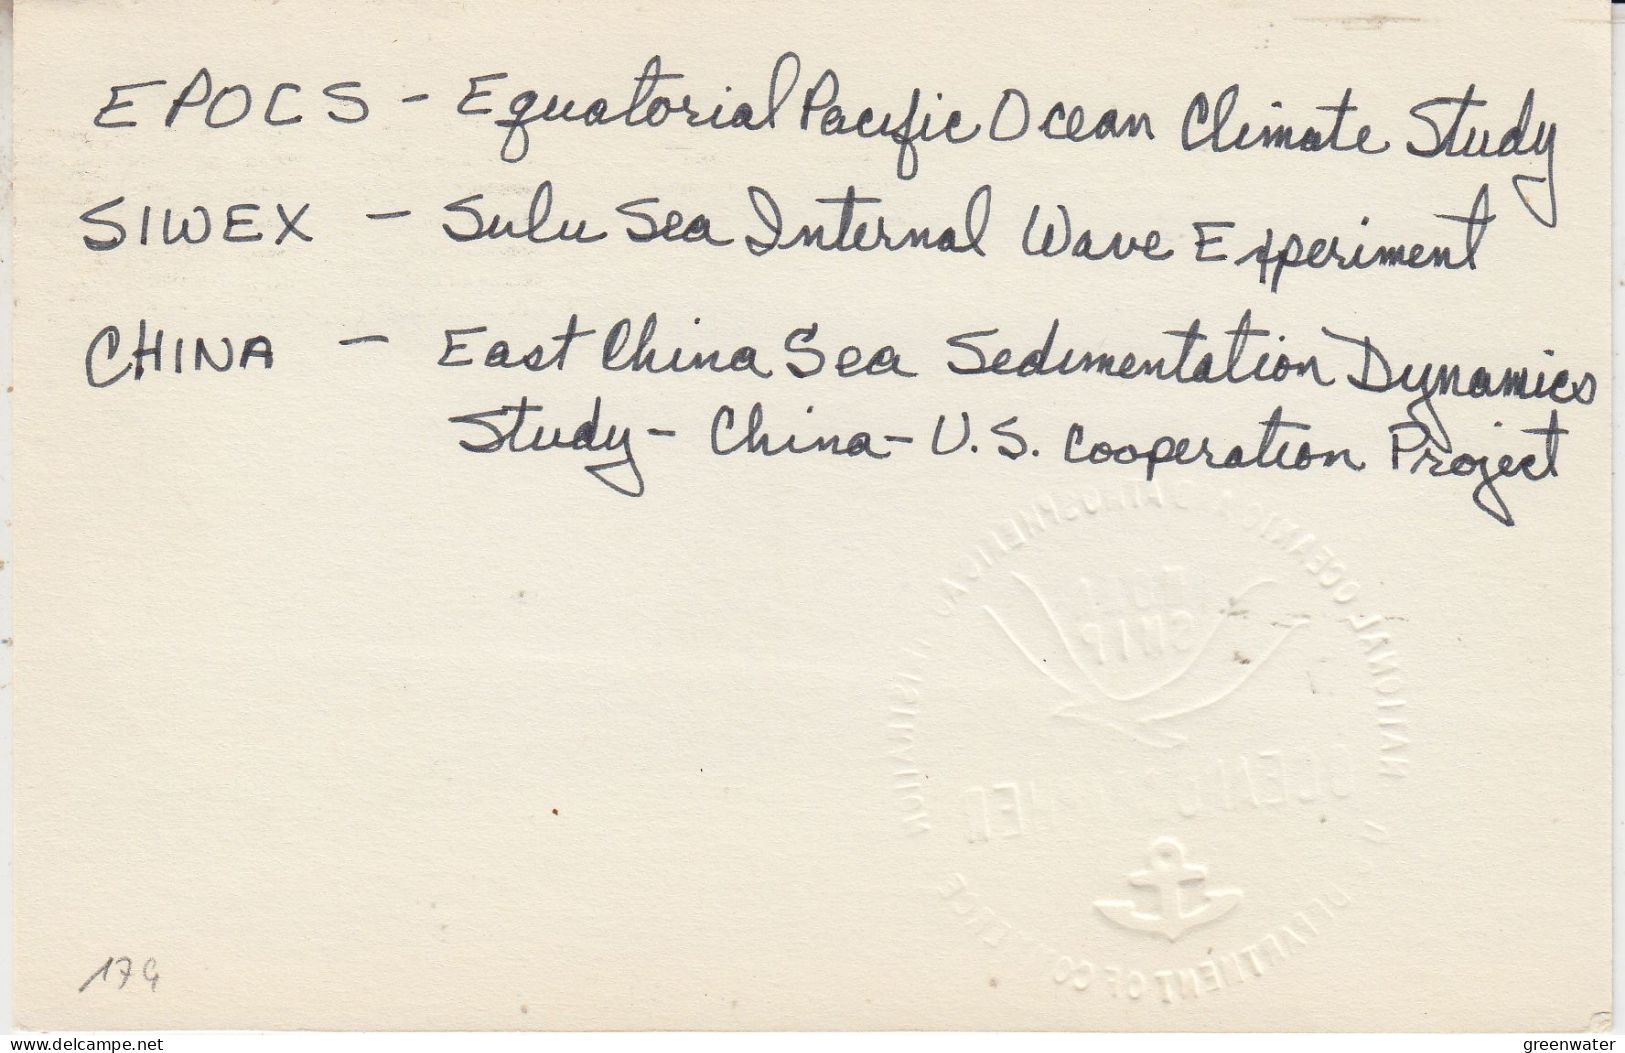 EPOCS - Equatorial Pacific Ocean Climate Study
SIWEX - Sulu Sea Internal Wave Experiment
CHINA - East China Sea Sedimentation Dynamics
Study - China - U.S. Cooperation Project
NATIONAL OCEANIC AND ATMOSPHERIC ADMINISTRATION
SHIP
DEPARTMENT OF COMMERCE
delcampe.net
greenwater